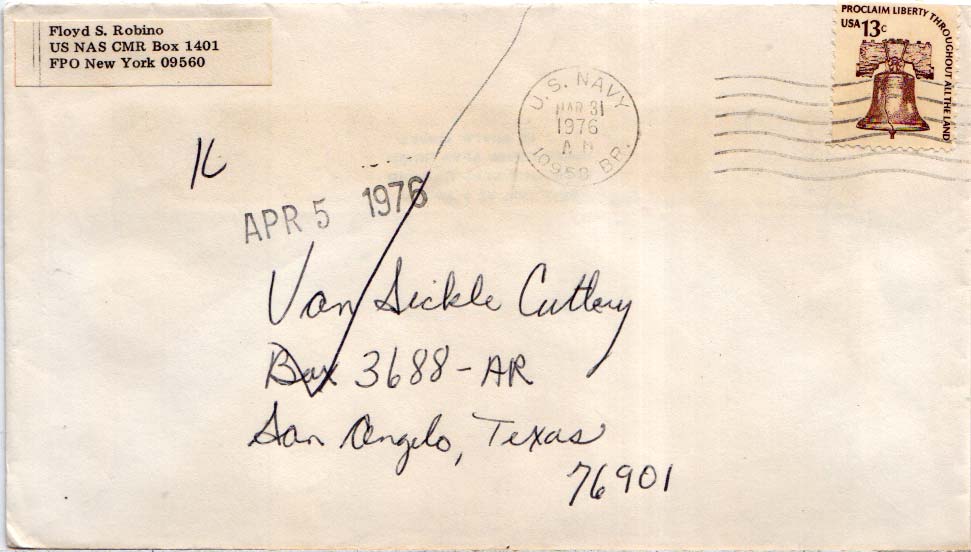 Floyd S. Robino
US NAS CMR Box 1401
FPO New York 09560
PROCLAIM LIBERTY THROUGHOUT ALL THE LAND
USA 13c
U.S. NAVY
MAR 31
1976
AM
10958 BR.
APR 5 1976
Van Sickle Cutlery
Box 3688-AR
San Angelo, Texas
76901